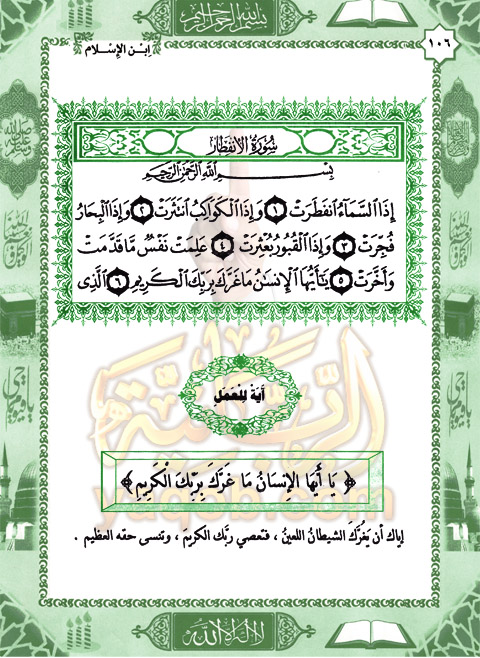 بسم الله الرحمن الرحيم
١٠٦
ابن الإسلام
سُورَةُ الِانفِطَارِ
بِسْمِ اللَّهِ الرَّحْمَٰنِ الرَّحِيمِ
إِذَا السَّمَآءُ انفَطَرَتْ ١ وَإِذَا الْكَوَاكِبُ انتَثَرَتْ ٢ وَإِذَا الْبِحَارُ
فُجِّرَتْ ٣ وَإِذَا الْقُبُورُ بُعْثِرَتْ ٤ عَلِمَتْ نَفْسٌ مَّا قَدَّمَتْ
وَأَخَّرَتْ ٥ يَٰٓأَيُّهَا الْإِنسَٰنُ مَا غَرَّكَ بِرَبِّكَ الْكَرِيمِ ٦ الَّذِى
آيَةٌ لِلْعَمَلِ
﴿ يَا أَيُّهَا الإِنسَانُ مَا غَرَّكَ بِرَبِّكَ الْكَرِيمِ ﴾
إياك أن يَغُرَّكَ الشيطانُ اللعينُ ، فتعصي ربَّك الكريمَ ، وتنسى حقه العظيم .
لا إله إلا الله